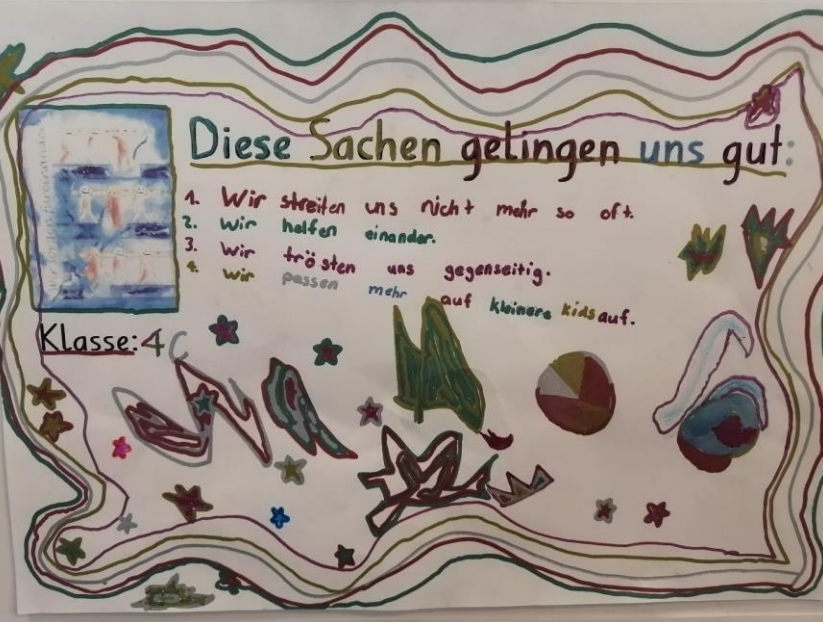 Diese Sachen gelingen uns gut:
1. Wir streiten uns nicht mehr so oft.
2. Wir helfen einander.
3. Wir trösten uns gegenseitig.
4. Wir passen mehr auf kleinere kids auf.
Klasse: 4c